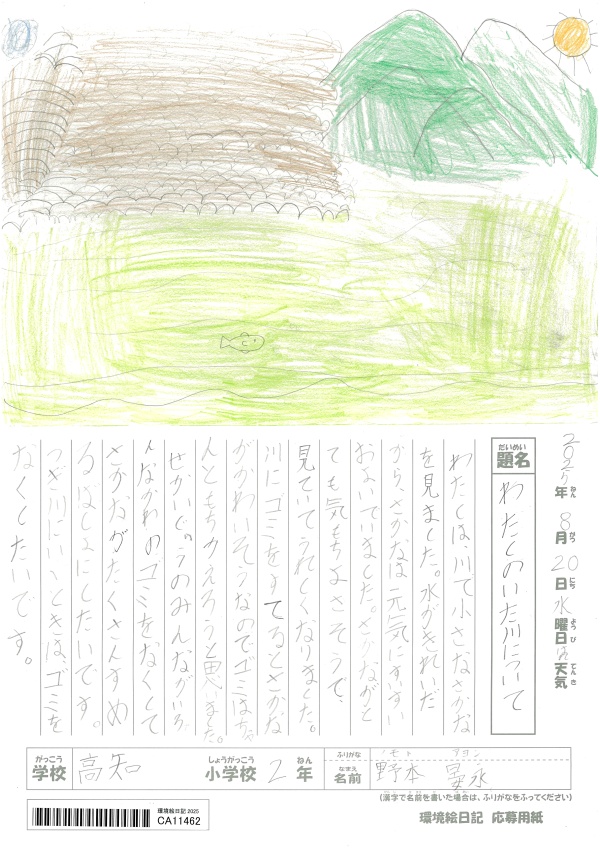 2025年ねん 8月がつ 20日にち 水曜日ようび 天気てんき
題名だいめい
わたしのいた川について
わたしは、川で小さなさかな
を見ました。水がきれいだ
から、さかなは元気にすいすい
およいでいました。さかながと
ても気もちよさそうで、
見ていてうれしくなりました。
川にゴミをすてるとさかな
がかわいそうなのでゴミはちゃ
んともちかえろうと思いました。
せかいじゅうのみんながいろ
んなかわのゴミをなくして
さかながたくさんすめ
るばしょにしたいです。
つぎ川にいくときは、ゴミを
なくしたいです。
学校がっこう 高知 小学校しょうがっこう 2年ねん
ふりがな ノモト
名前なまえ 野本
(漢字で名前を書いた場合は、ふりがなをふってください)
環境絵日記 2025
CA11462
環境絵日記 応募用紙